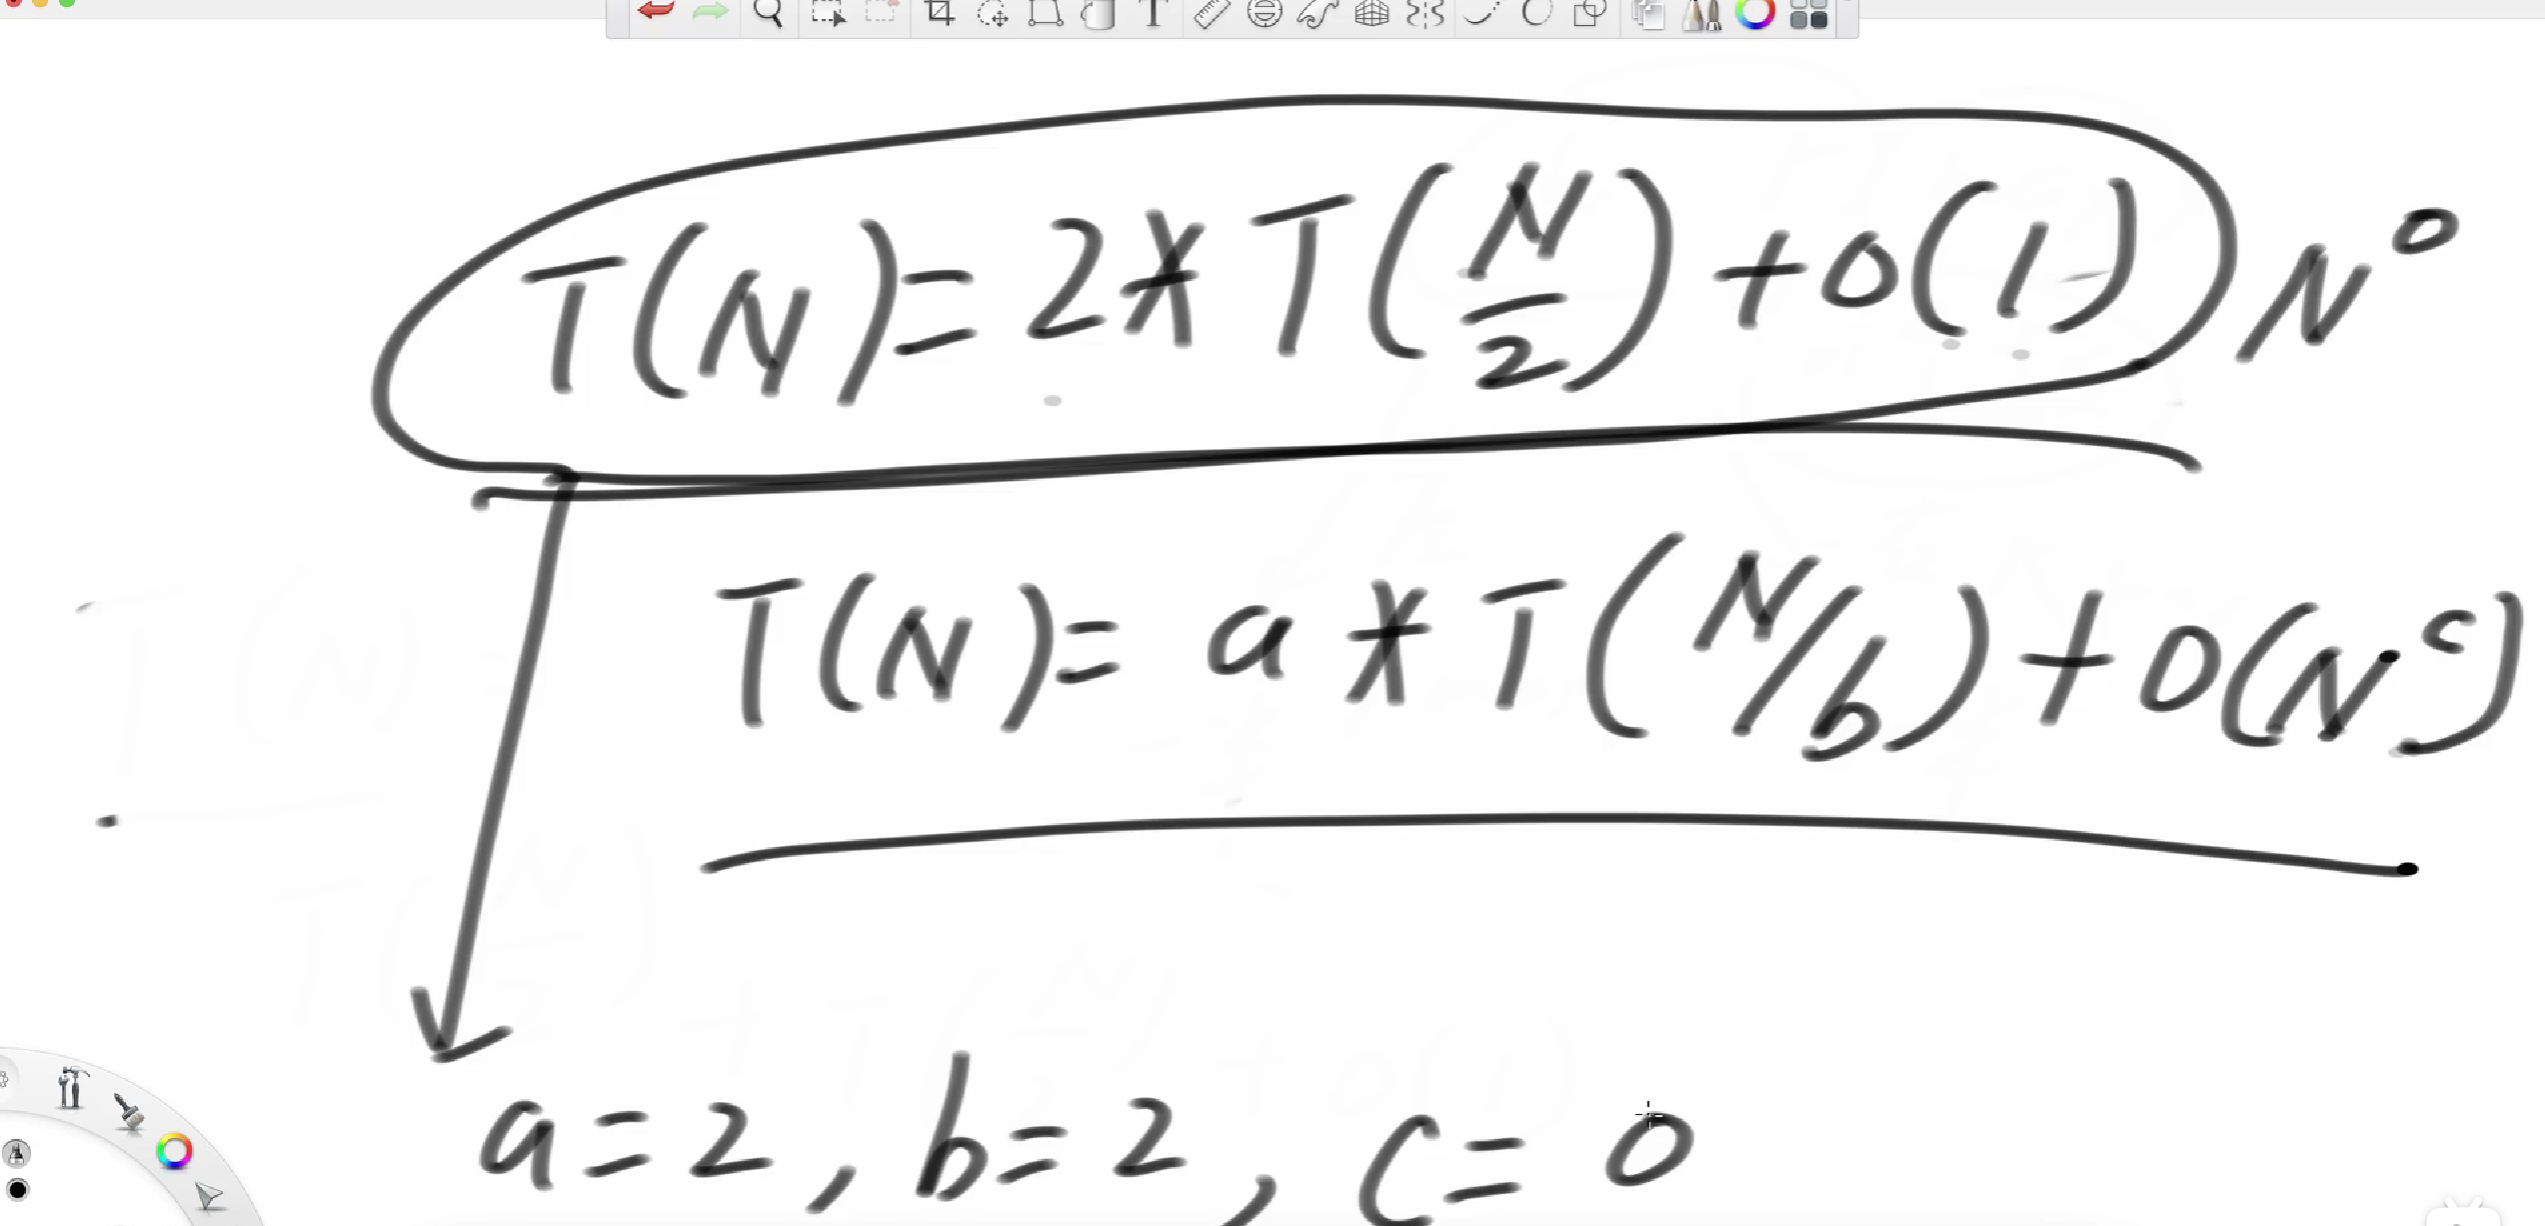 T(N)= 2* T(N/2)+O(1) N^0
T(N)= a * T(N/b)+O(N^c)
a=2, b=2, c= 0